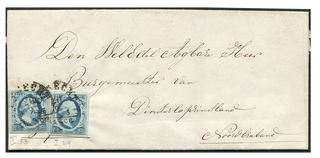 Den WelEdel Agbare Heer
Burgemeester van
Dinteloordprinsland
Noordbraband